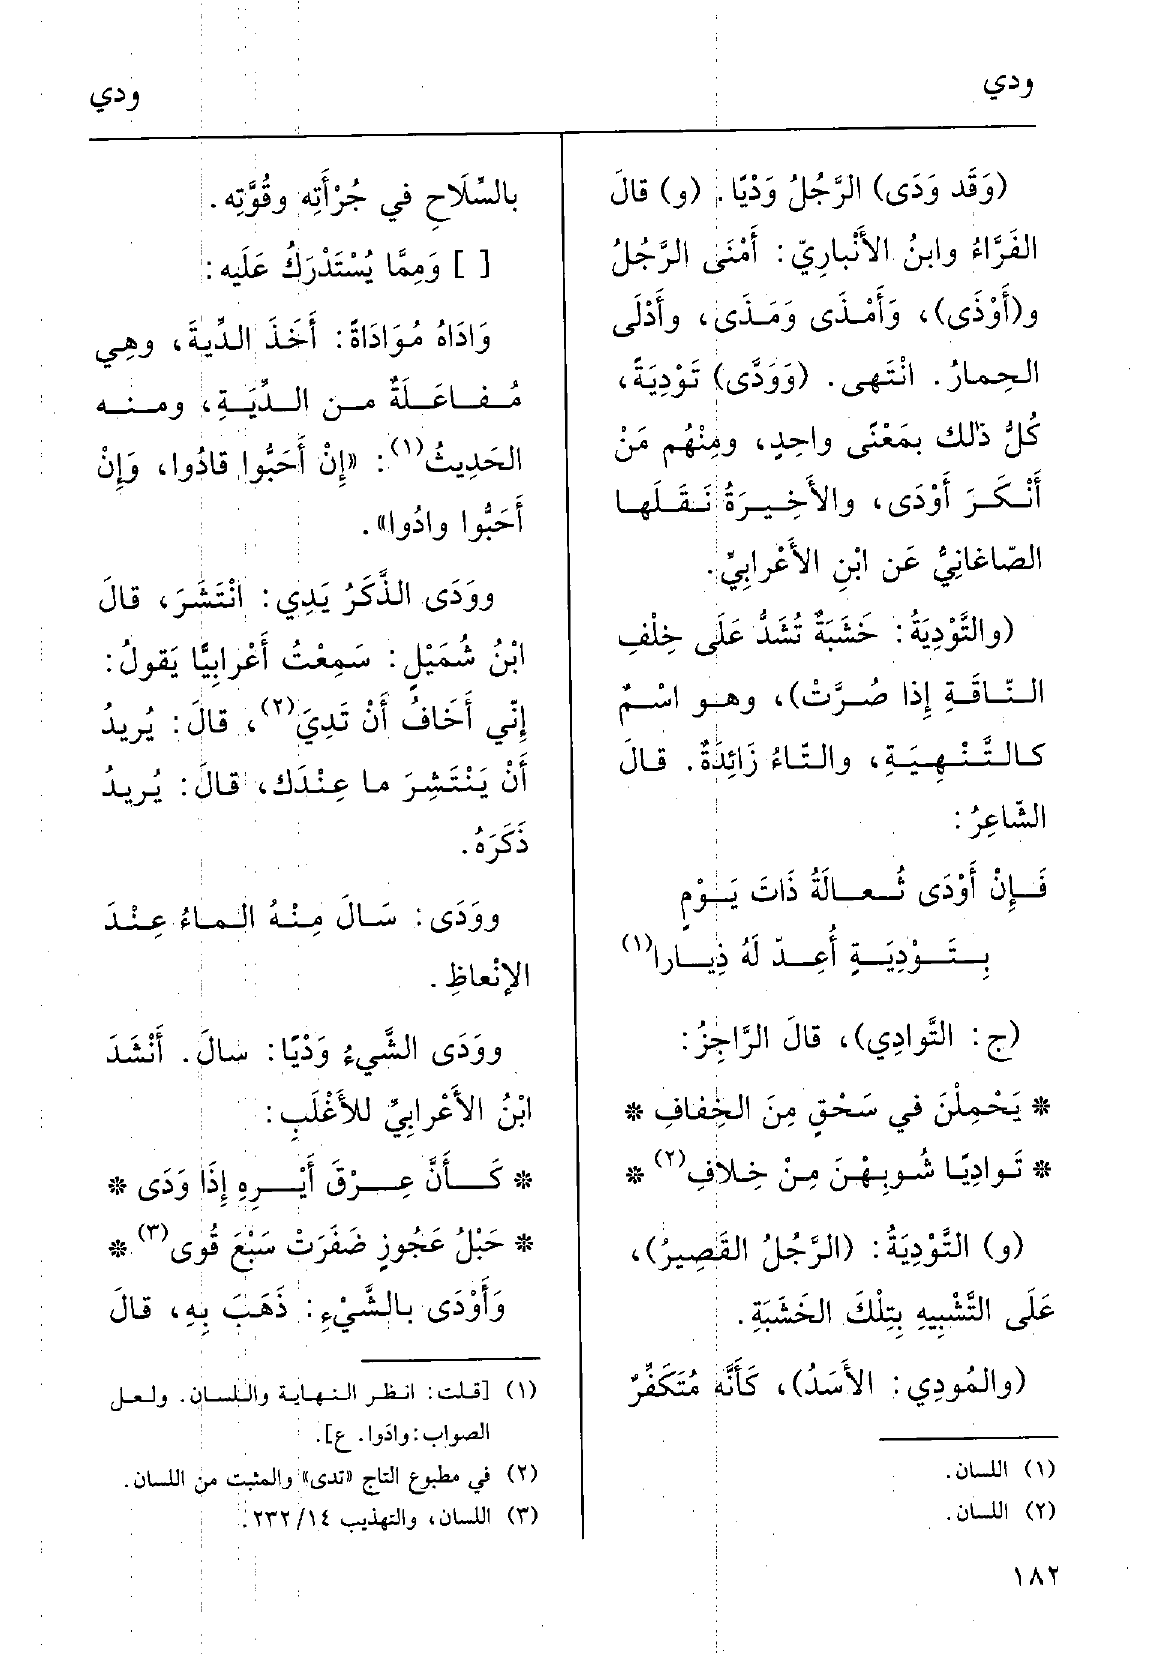 ودي
ودي
(وَقَد وَدَى) الرَّجُلُ وَدْيًا. (و) قالَ
الفَرَّاءُ وابنُ الأَنْبارِيّ: أَمْنَى الرَّجُلُ
و(أَوْدَى)، وَأَمْـذَى ومَـذَى، وأَدْلَى
الحِمارُ. انْتَهى. (وَوَدَّى) تَوْدِيَةً،
كُلُّ ذٰلك بمَعْنًى واحِدٍ، ومِنْهُم مَنْ
أَنْكَرَ أَوْدَى، والأَخِيرَةُ نَقَلَها
الصّاغانِيُّ عَن ابْنِ الأَعْرابِيِّ.
(والتَّوْدِيَةُ: خَشَبَةٌ تُشَدُّ عَلَى خِلْفِ
النّاقَةِ إِذا صُرَّتْ)، وهو اسْمٌ
كالتَّنْهِيَةِ، والتّاءُ زَائِدَةٌ. قالَ
الشّاعِرُ:
فَإِنْ أَوْدَى ثُعالَةُ ذَاتَ يَوْمٍ
بِتَوْدِيَةٍ أُعِدّ لَهُ ذِيارا(١)
(ج: التَّوادِي)، قالَ الرَّاجِزُ:
* يَحْمِلْنَ في سَحْقٍ مِنَ الخِفافِ *
* تَوادِيًا شُوبِهْنَ مِنْ خِلافِ(٢) *
(و) التَّوْدِيَةُ: (الرَّجُلُ القَصِيرُ)،
عَلَى التَّشْبِيهِ بِتِلْكَ الخَشَبَةِ.
(والمُودِي: الأَسَدُ)، كَأَنَّه مُتَكَفِّرٌ
(١) اللسان.
(٢) اللسان.
بالسِّلَاحِ في جُرْأَتِه وقُوَّتِه.
[ ] وَمِمَّا يُسْتَدْرَكُ عَلَيه:
وَادَاهُ مُوَادَاةً: أَخَذَ الدِّيةَ، وهِي
مُفاعَلَةٌ من الدِّيَةِ، ومنه
الحَدِيثُ(١): «إِنْ أَحَبُّوا قادُوا، وَإِنْ
أَحَبُّوا وادُوا».
ووَدَى الذَّكَرُ يَدِي: انْتَشَرَ، قالَ
ابْنُ شُمَيْلٍ: سَمِعْتُ أَعْرابِيًّا يَقولُ:
إِنِّي أَخَافُ أَنْ تَدِيَ(٢)، قالَ: يُرِيدُ
أَنْ يَنْتَشِرَ ما عِنْدَك، قالَ: يُرِيدُ
ذَكَرَهُ.
ووَدَى: سَالَ مِنْهُ الماءُ عِنْدَ
الإنْعاظِ.
ووَدَى الشَّيءُ وَدْيًا: سالَ. أَنْشَدَ
ابْنُ الأَعْرابِيِّ للأَغْلَبِ:
* كَأَنَّ عِرْقَ أَيْرِهِ إِذَا وَدَى *
* حَبْلُ عَجُوزٍ ضَفَرَتْ سَبْعَ قُوى(٣) *
وَأَوْدَى بالشَّيْءِ: ذَهَبَ بِهِ، قالَ
(١) [قلت: انظر النهاية واللسان. ولعل
الصواب: وادَوا. ع].
(٢) في مطبوع التاج «تدى» والمثبت من اللسان.
(٣) اللسان، والتهذيب ٢٣٢/١٤.
١٨٢